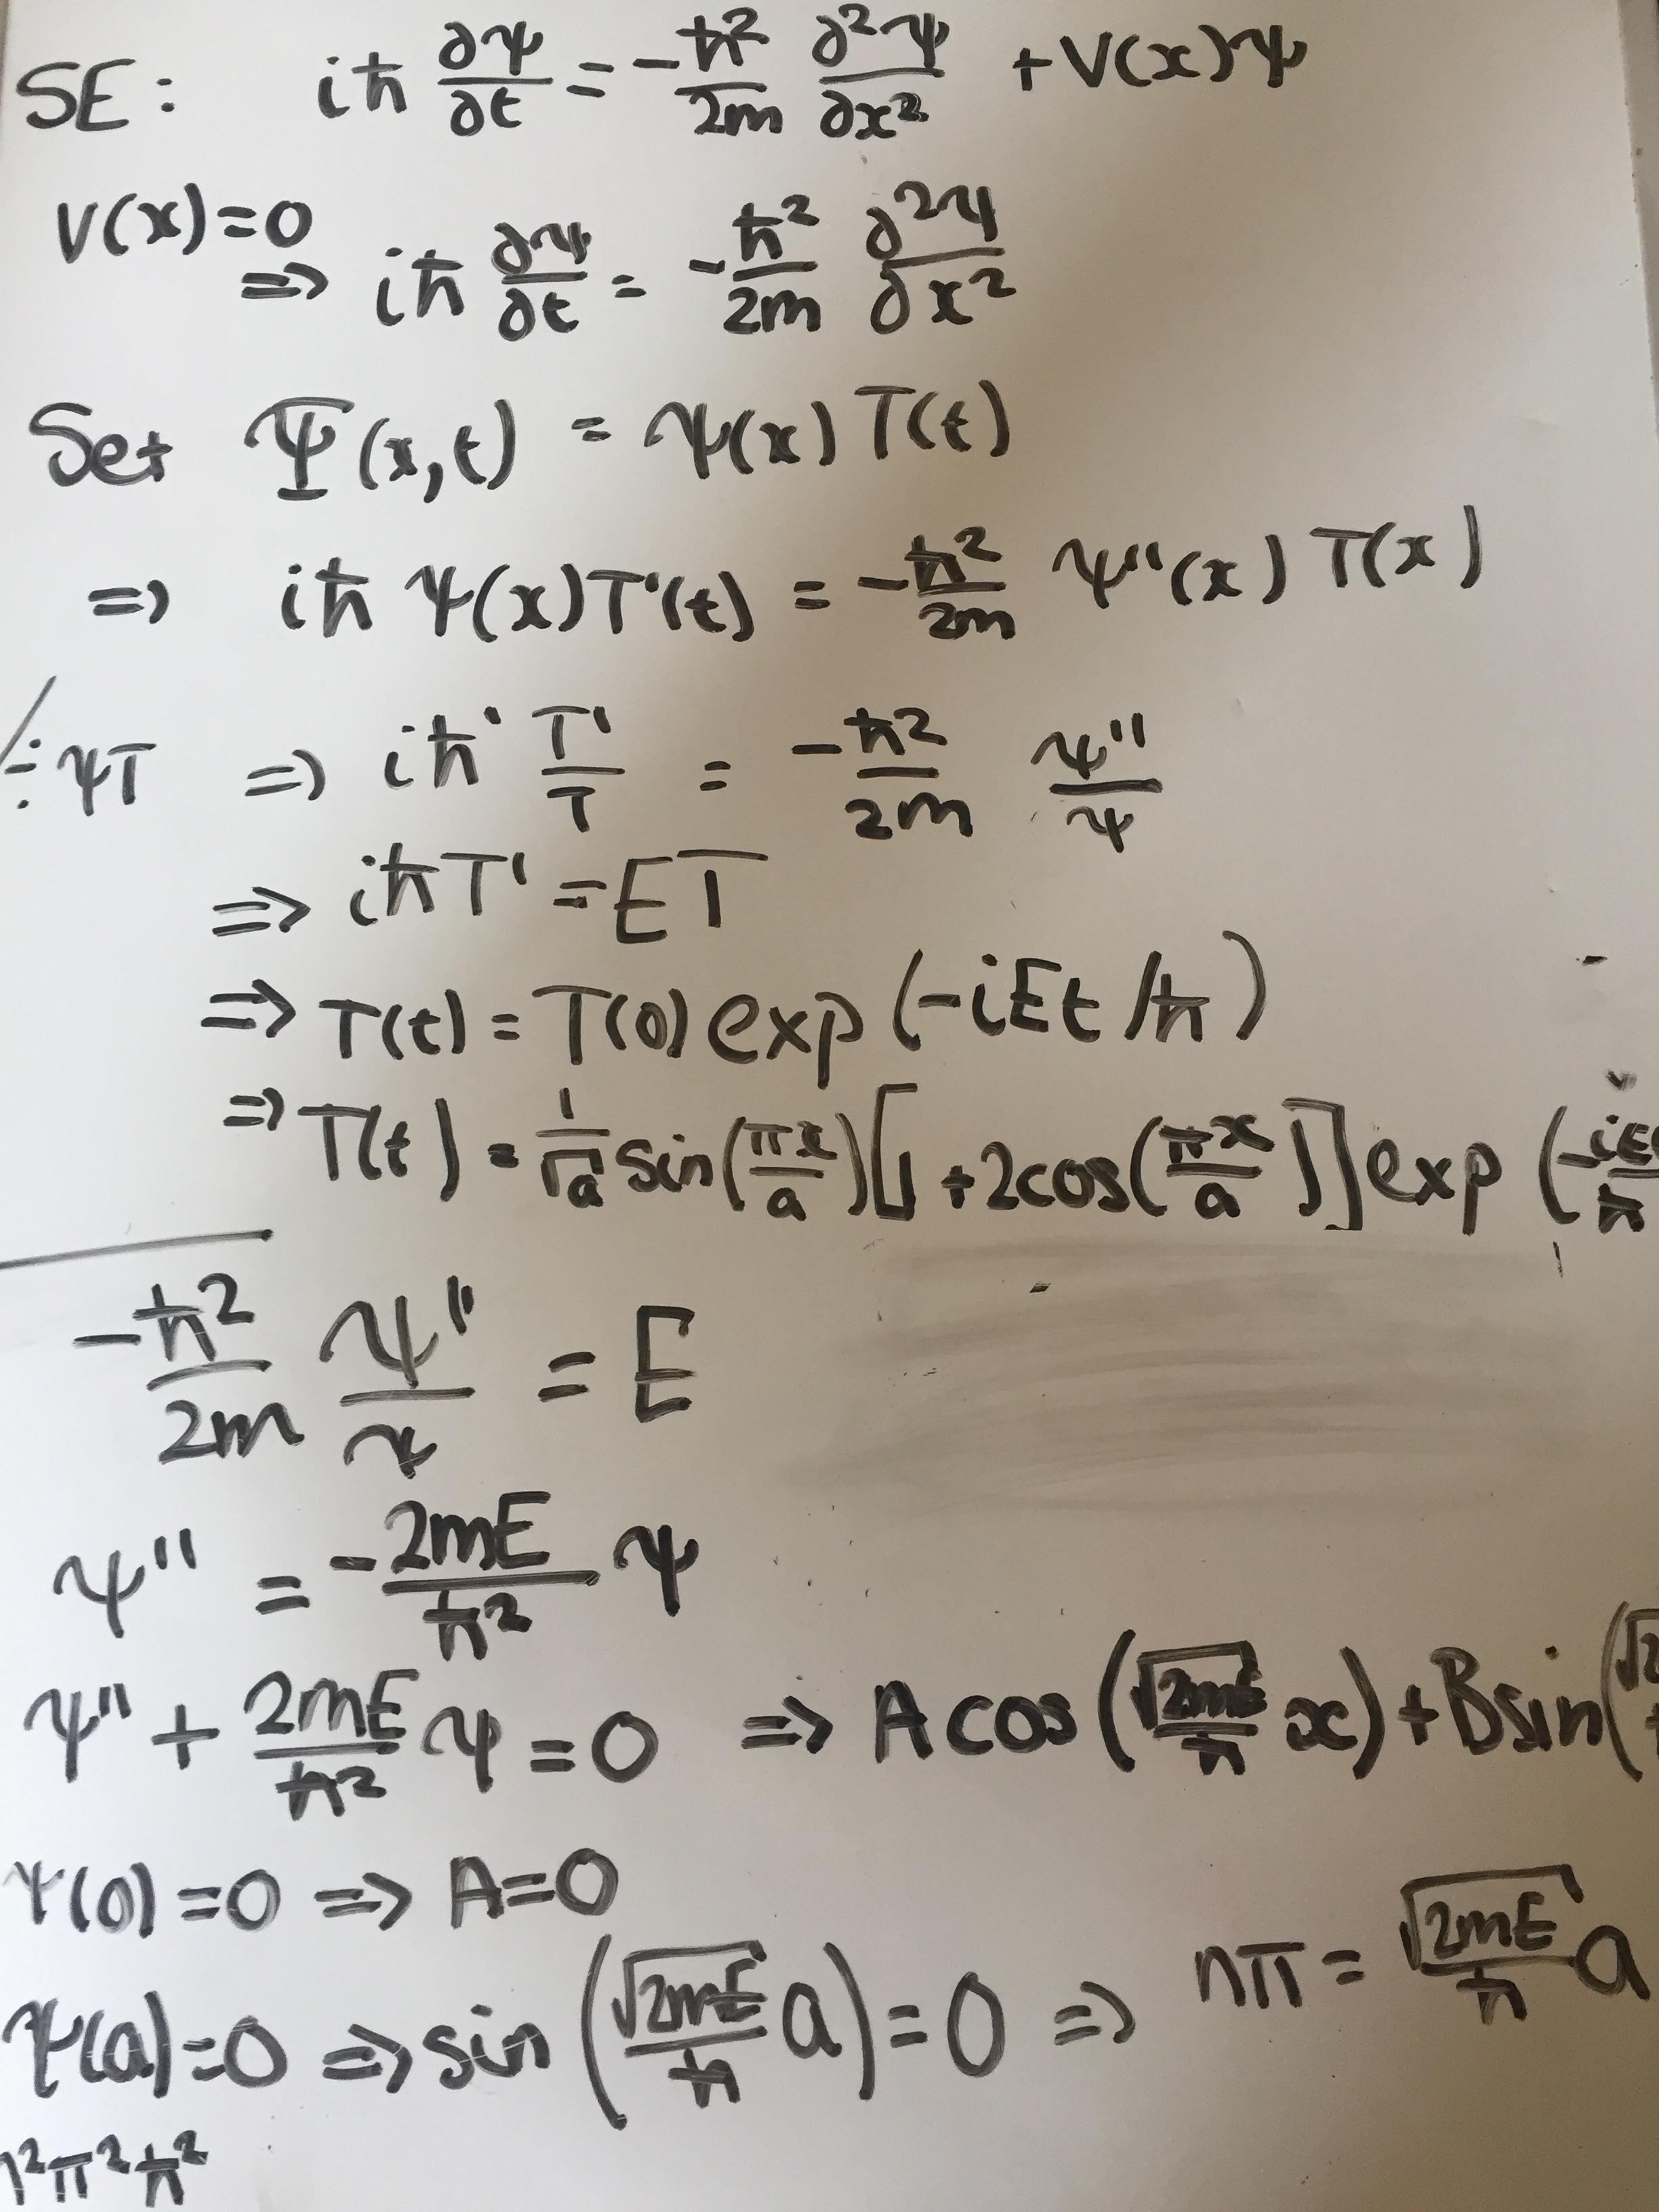 SE: iħ ∂ψ/∂t = -ħ²/2m ∂²ψ/∂x² + V(x)ψ
V(x)=0
=> iħ ∂ψ/∂t = -ħ²/2m ∂²ψ/∂x²
Set Ψ(x,t) = ψ(x)T(t)
=> iħ ψ(x)T'(t) = -ħ²/2m ψ''(x)T(x)
÷ψT => iħ T'/T = -ħ²/2m ψ''/ψ
=> iħT' = ET
=> T(t) = T(0)exp(-iEt/ħ)
=> T(t) = 1/√a sin(πx/a)[1+2cos(πx/a)]exp(-iE/ħ
-ħ²/2m ψ''/ψ = E
ψ'' = -2mE/ħ² ψ
ψ'' + 2mE/ħ² ψ = 0 => A cos(√2mE/ħ x) + B sin(√2
ψ(0)=0 => A=0
ψ(a)=0 => sin(√2mE/ħ a) = 0 => nπ = √2mE/ħ a
n²π²ħ²